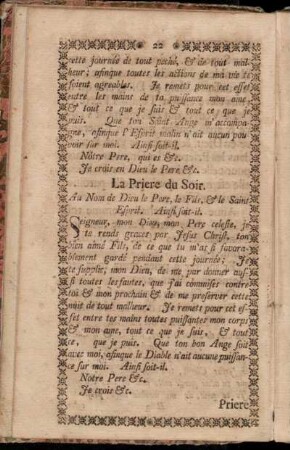 22
cette journée de tout peché, & de tout mal-
heur; afinque toutes les actions de ma vie te
soient agreables. Je remets pour cet effet
entre les mains de ta puissance mon ame
& tout ce que je suis & tout ce que je
puis. Que ton Saint Ange m'accompa-
gne, afinque l'Esprit malin n'ait aucun pou-
voir sur moi. Ainsi soit-il.
Nôtre Pere, qui es &c.
Je crois en Dieu le Pere &c.
La Priere du Soir.
Au Nom de Dieu le Pere, le Fils, & le Saint
Esprit. Ainsi soit-il.
Seigneur, mon Dieu, mon Pere celeste, je
te rends graces par Jesus Christ, ton
bien aimé Fils, de ce que tu m'as si favora-
blement gardé pendant cette journée. Je
te supplie, mon Dieu, de me pardonner aussi
toutes les fautes, que j'ai commises contre
toi & mon prochain & de me preserver cette
nuit de tout malheur. Je remets pour cet ef-
effet entre tes mains toutes puissantes mon corps
& mon ame, tout ce que je suis, & tout
ce, que je puis. Que ton bon Ange soit
avec moi, afinque le Diable n'ait aucune puissan-
ce sur moi. Ainsi soit-il.
Notre Pere &c.
Je crois &c.
Priere